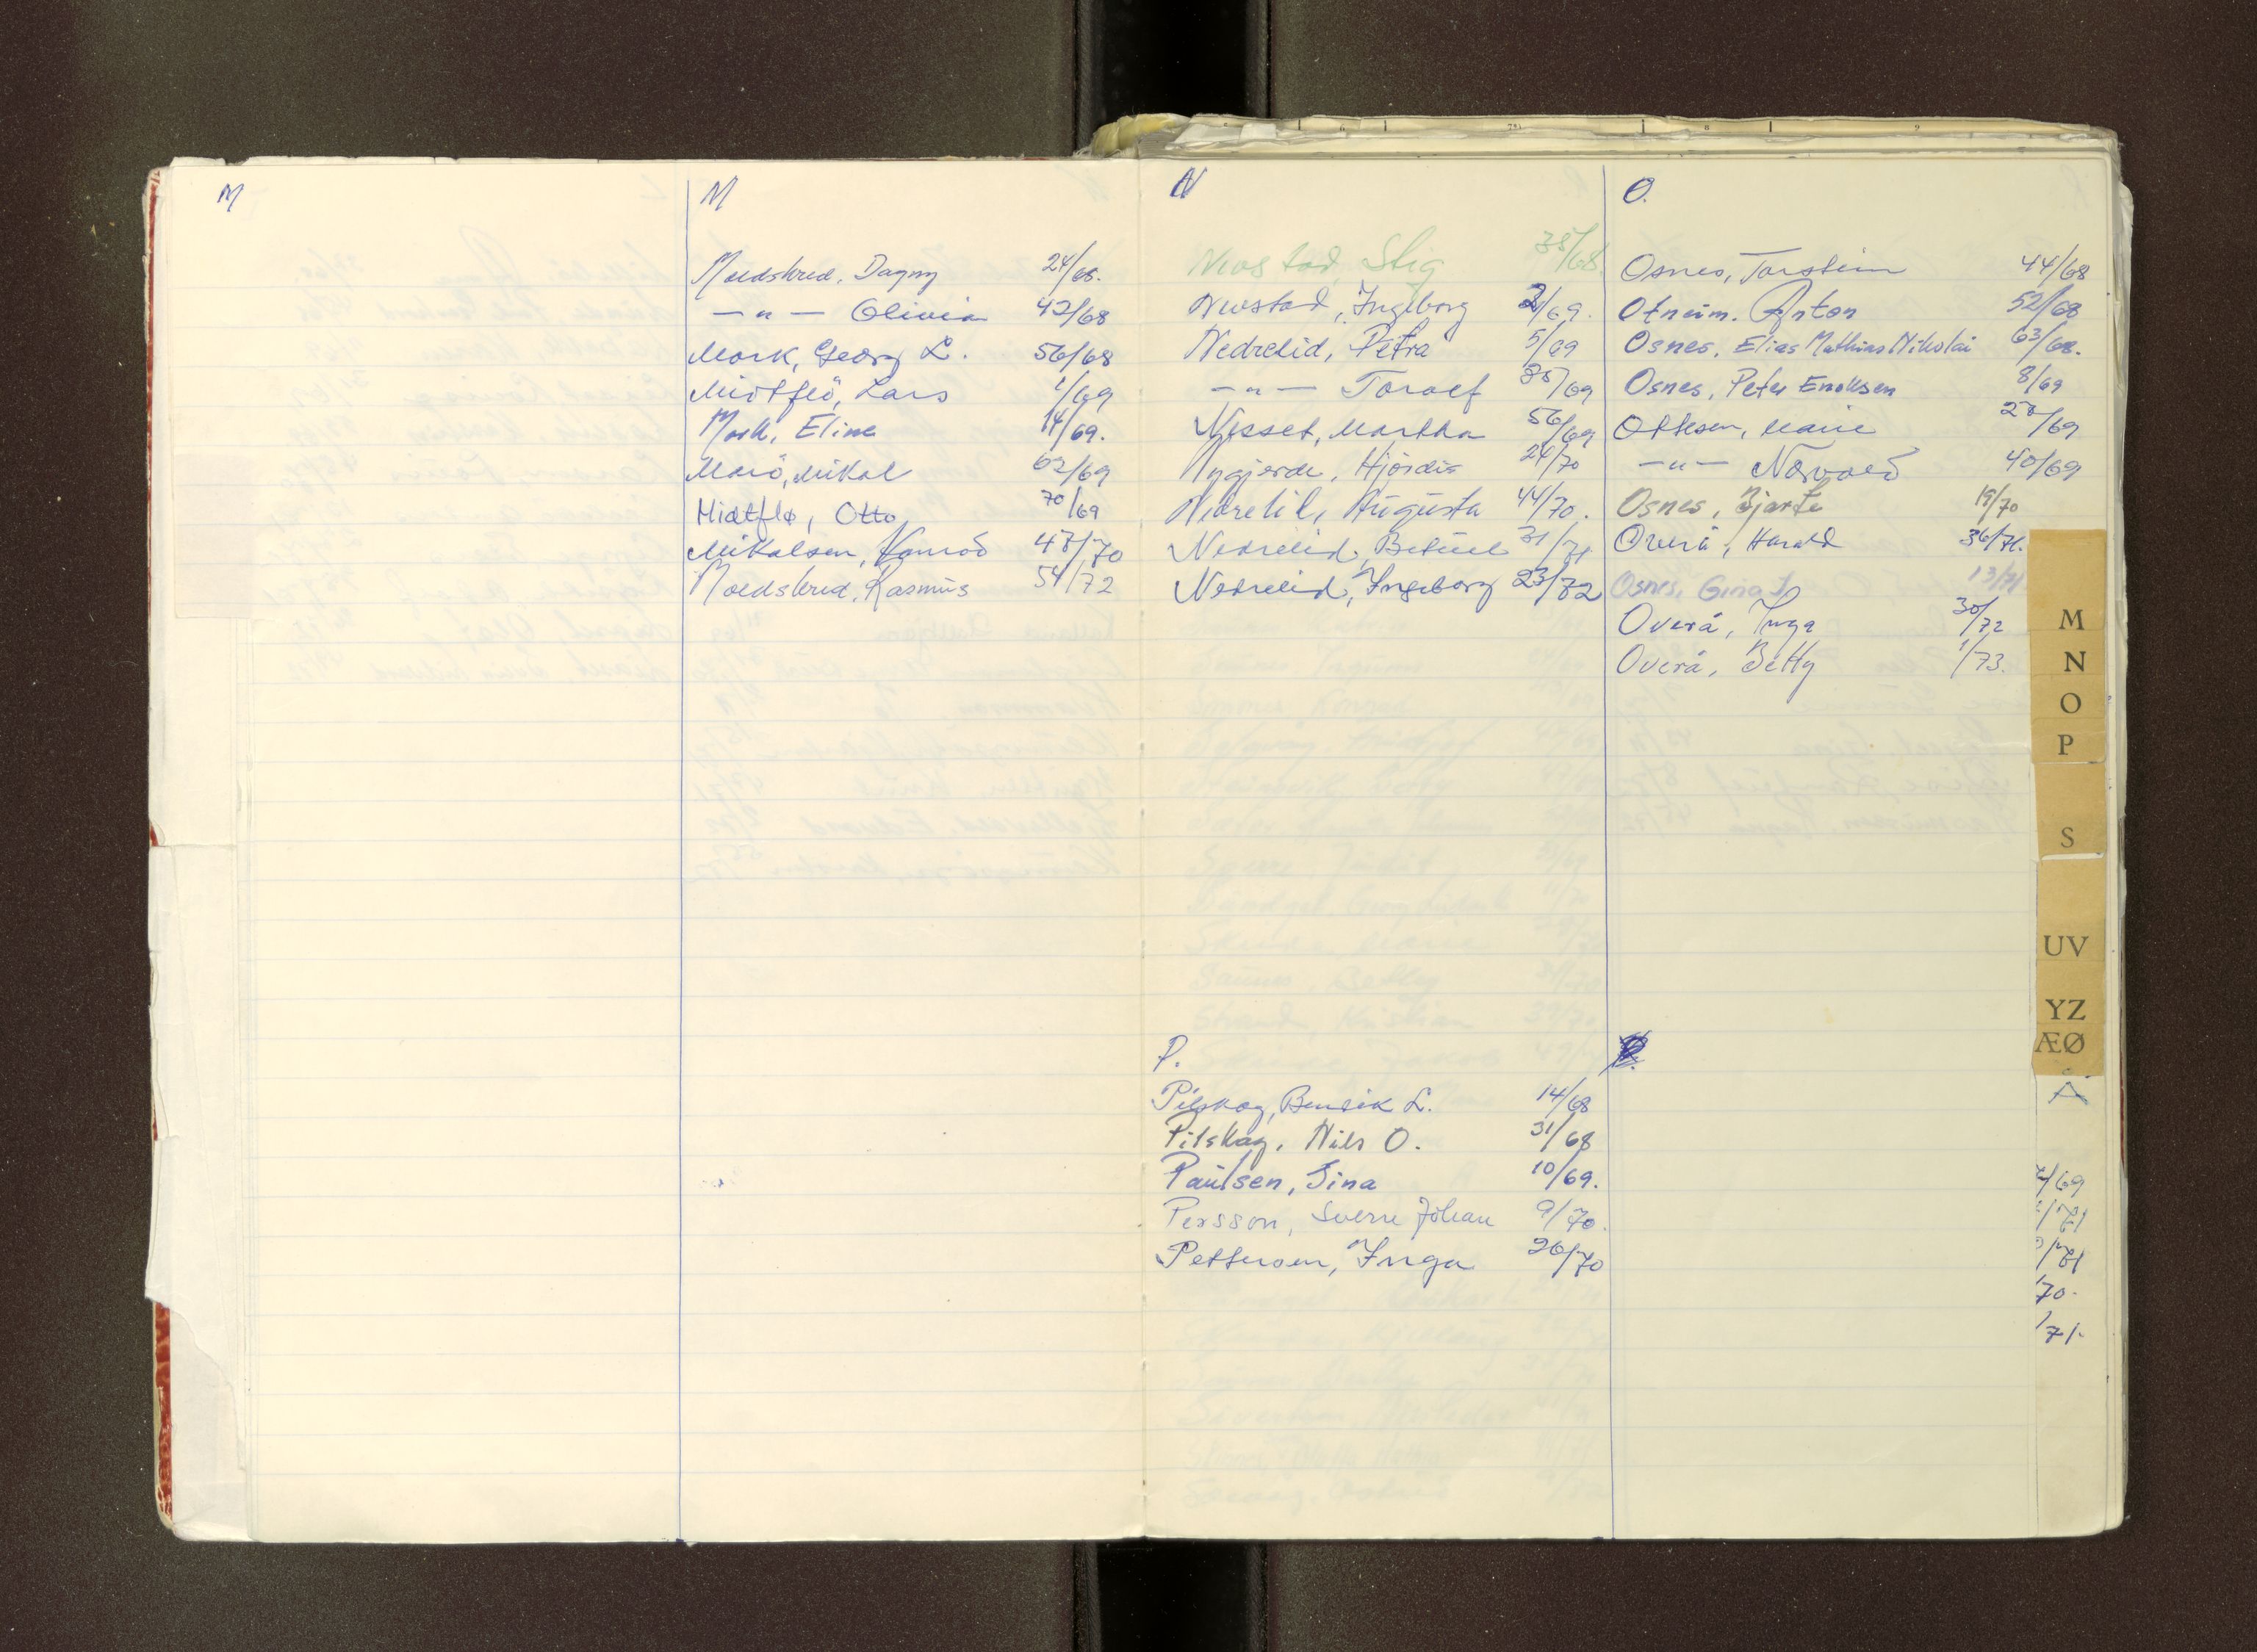 M
M
Moldskred, Dagny 24/68.
— " — Olivia 42/68
Mork, Georg L. 56/68
Midtflö, Lars 1/69
Mork, Eline 14/69.
Marö, Mikal 62/69
Midtflø, Otto 70/69
Mikalsen, Konrad 47/70
Moldskred, Rasmus 54/72
N
Nevstad, Stig 35/68.
Nevstad, Ingeborg 2/69.
Nedrelid, Petra 5/69
— " — Toralf 35/69
Nesset, Martha 56/69
Nygjerde, Hjördis 24/70
Nedrelid, Augusta 44/70.
Nedrelid, Betuel 31/71
Nedrelid, Ingeborg 23/72
P.
Pilskog, Bendik L. 14/68
Pilskog, Nils O. 31/68
Paulsen, Gina 10/69.
Persson, Sverre Johan 9/70.
Pettersen, Inga 26/70
O.
Osnes, Torstein 44/68
Otneim, Anton 52/68
Osnes, Elias Mathias Nikolai 63/68.
Osnes, Peter Enoksen 8/69
Ottesen, Marie 28/69
— " — Norvald 40/69
Osnes, Bjarte 19/70
Overå, Harald 36/71.
Osnes, Gina J 13/71
Overå, Inga 30/72
Overå, Betty 1/73.
M
N
O
P
S
UV
YZ
ÆØ
Å
/69
/71
/71
70.
/71.